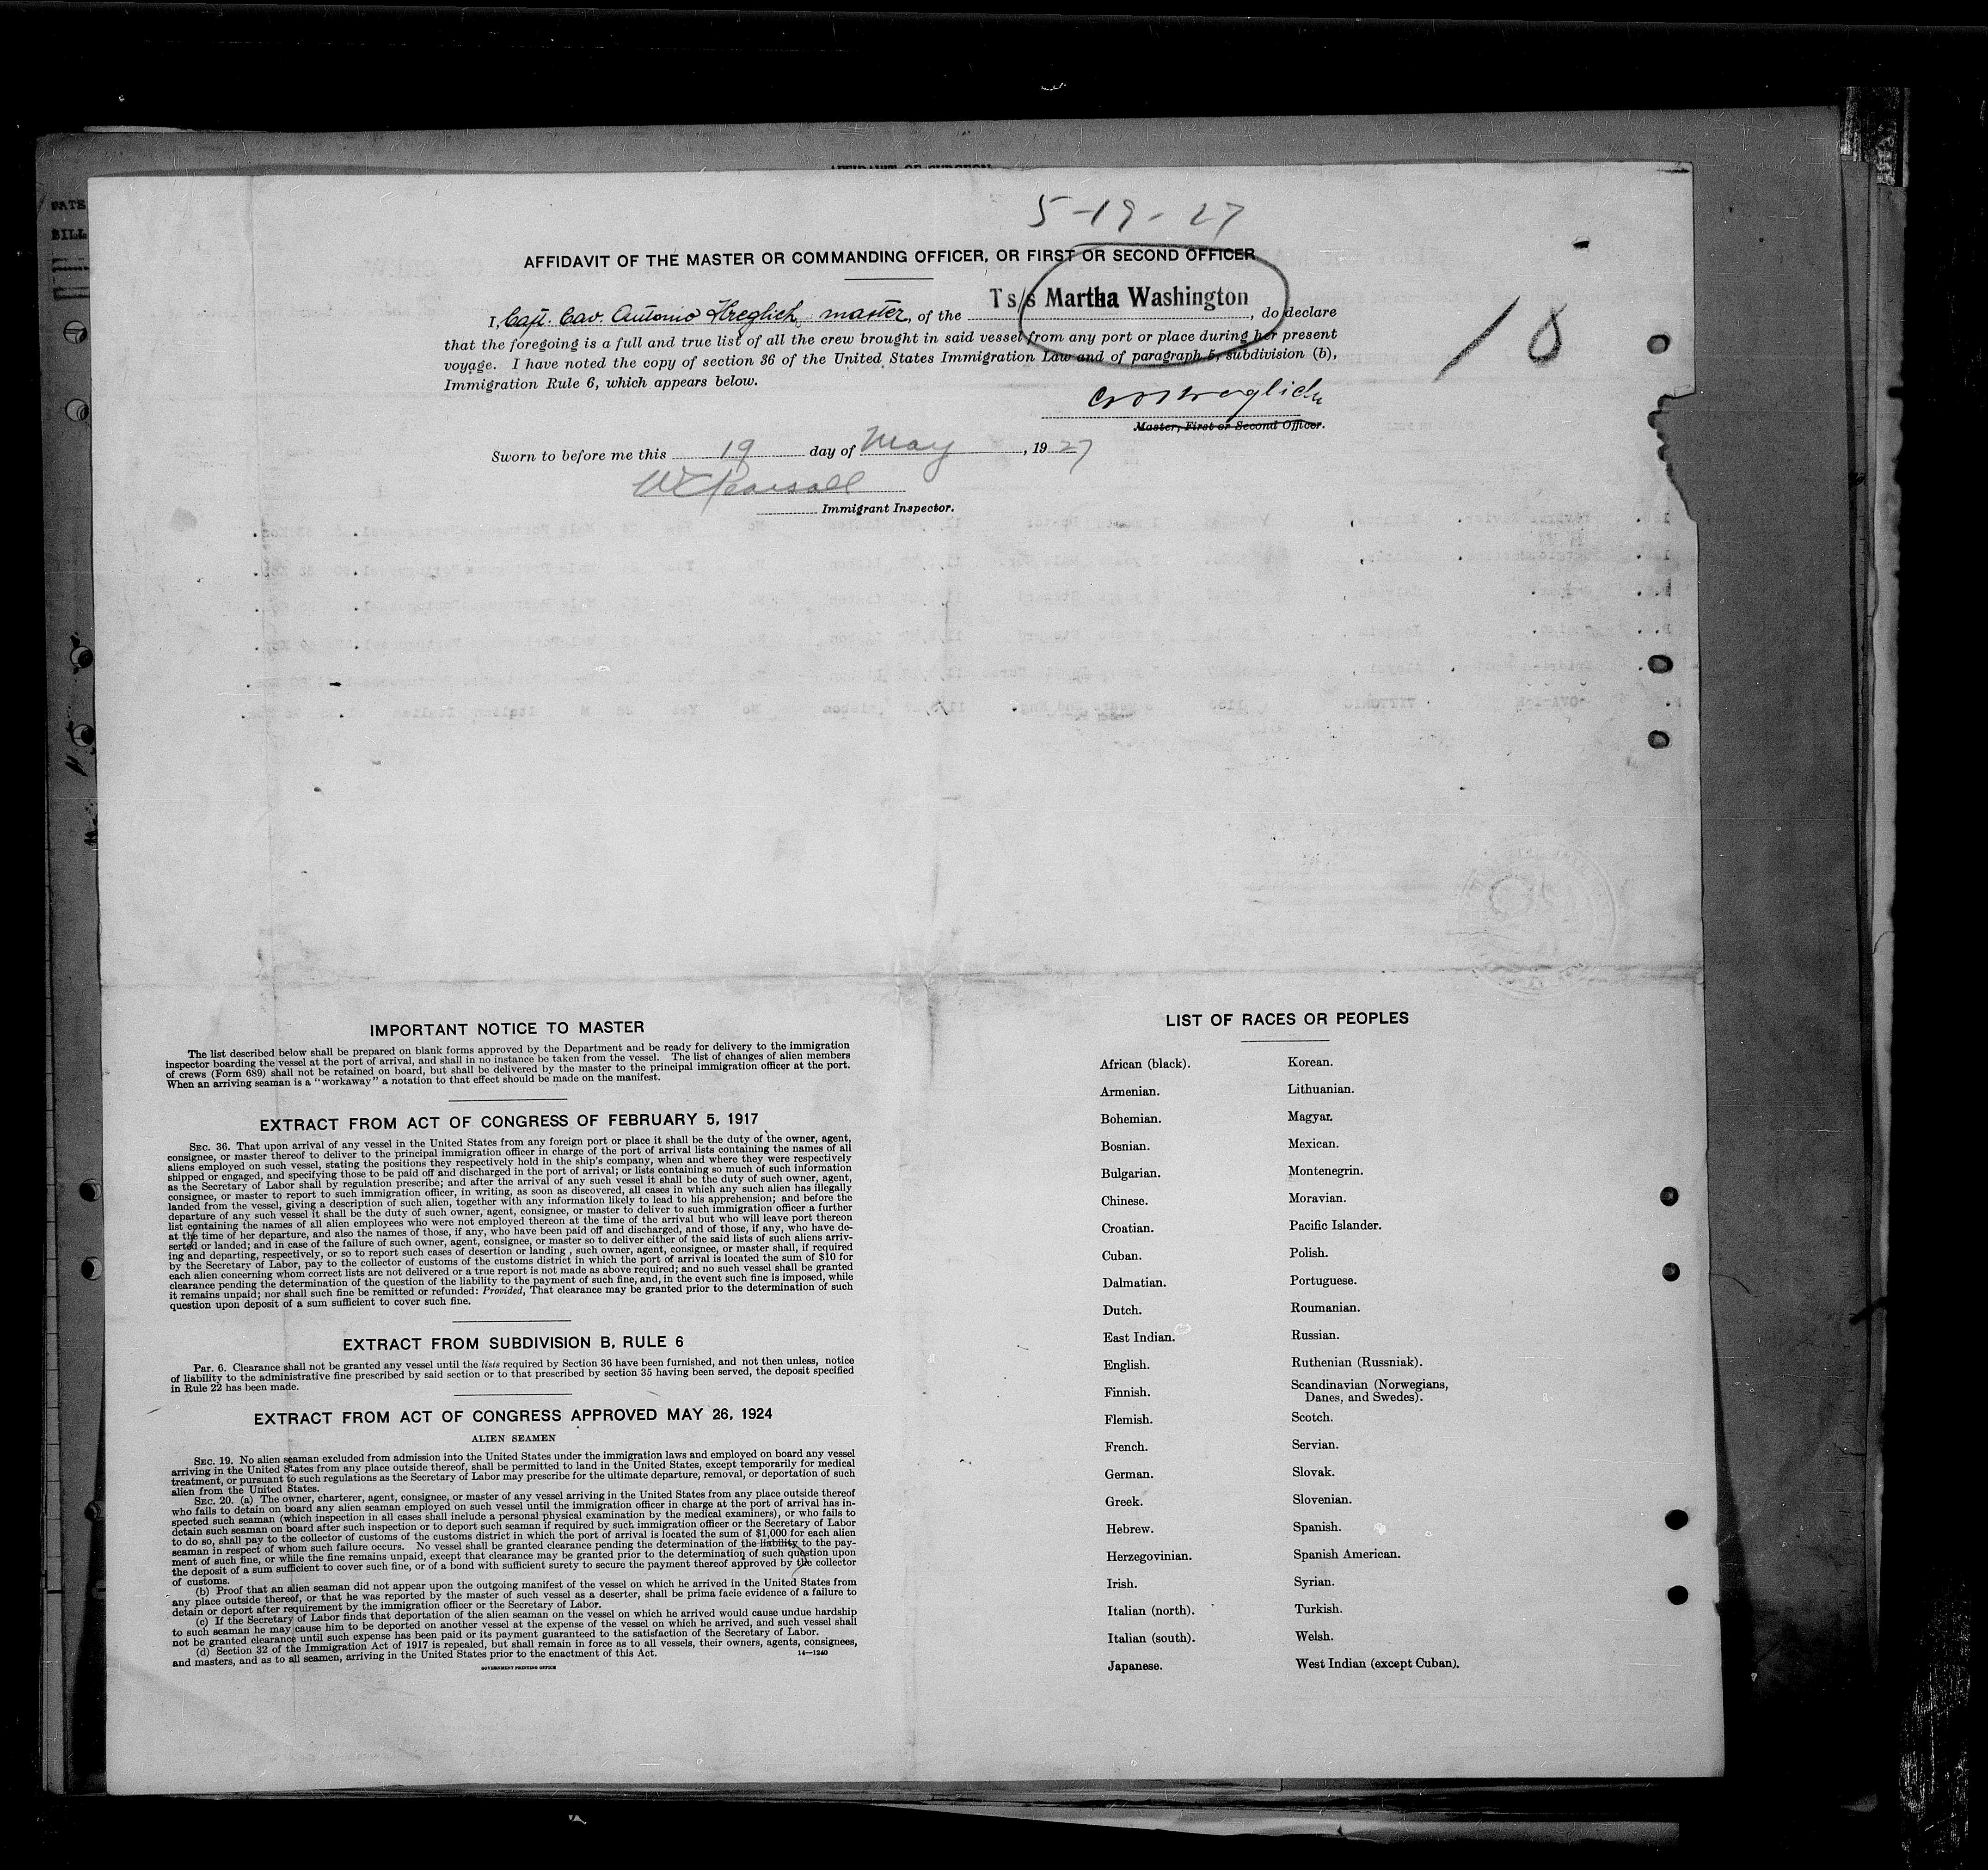 5-19-27
AFFIDAVIT OF THE MASTER OR COMMANDING OFFICER, OR FIRST OR SECOND OFFICER
Ts/s Martha Washington
I, Capt. Cav. Antonio Hreglich, master, of the , do declare
that the foregoing is a full and true list of all the crew brought in said vessel from any port or place during her present
voyage. I have noted the copy of section 36 of the United States Immigration Law and of paragraph 5, subdivision (b),
Immigration Rule 6, which appears below.
18
Master, First or Second Officer.
Sworn to before me this 19 day of May, 1927
Immigrant Inspector.
IMPORTANT NOTICE TO MASTER
The list described below shall be prepared on blank forms approved by the Department and be ready for delivery to the immigration
inspector boarding the vessel at the port of arrival, and shall in no instance be taken from the vessel. The list of changes of alien members
of crews (Form 689) shall not be retained on board, but shall be delivered by the master to the principal immigration officer at the port.
When an arriving seaman is a "workaway" a notation to that effect should be made on the manifest.
EXTRACT FROM ACT OF CONGRESS OF FEBRUARY 5, 1917
SEC. 36. That upon arrival of any vessel in the United States from any foreign port or place it shall be the duty of the owner, agent,
consignee, or master thereof to deliver to the principal immigration officer in charge of the port of arrival lists containing the names of all
aliens employed on such vessel, stating the positions they respectively hold in the ship's company, when and where they were respectively
shipped or engaged, and specifying those to be paid off and discharged in the port of arrival; or lists containing so much of such information
as the Secretary of Labor shall by regulation prescribe; and after the arrival of any such vessel it shall be the duty of such owner, agent,
consignee, or master to report to such immigration officer, in writing, as soon as discovered, all cases in which any such alien has illegally
landed from the vessel, giving a description of such alien, together with any information likely to lead to his apprehension; and before the
departure of any such vessel it shall be the duty of such owner, agent, consignee, or master to deliver to such immigration officer a further
list containing the names of all alien employees who were not employed thereon at the time of the arrival but who will leave port thereon
at the time of her departure, and also the names of those, if any, who have been paid off and discharged, and of those, if any, who have de-
serted or landed; and in case of the failure of such owner, agent, consignee, or master so to deliver either of the said lists of such aliens arriv-
ing and departing, respectively, or so to report such cases of desertion or landing , such owner, agent, consignee, or master shall, if required
by the Secretary of Labor, pay to the collector of customs of the customs district in which the port of arrival is located the sum of $10 for
each alien concerning whom correct lists are not delivered or a true report is not made as above required; and no such vessel shall be granted
clearance pending the determination of the question of the liability to the payment of such fine, and, in the event such fine is imposed, while
it remains unpaid; nor shall such fine be remitted or refunded: Provided, That clearance may be granted prior to the determination of such
question upon deposit of a sum sufficient to cover such fine.
EXTRACT FROM SUBDIVISION B, RULE 6
Par. 6. Clearance shall not be granted any vessel until the lists required by Section 36 have been furnished, and not then unless, notice
of liability to the administrative fine prescribed by said section or to that prescribed by section 35 having been served, the deposit specified
in Rule 22 has been made.
EXTRACT FROM ACT OF CONGRESS APPROVED MAY 26, 1924
ALIEN SEAMEN
SEC. 19. No alien seaman excluded from admission into the United States under the immigration laws and employed on board any vessel
arriving in the United States from any place outside thereof, shall be permitted to land in the United States, except temporarily for medical
treatment, or pursuant to such regulations as the Secretary of Labor may prescribe for the ultimate departure, removal, or deportation of such
alien from the United States.
SEC. 20. (a) The owner, charterer, agent, consignee, or master of any vessel arriving in the United States from any place outside thereof
who fails to detain on board any alien seaman employed on such vessel until the immigration officer in charge at the port of arrival has in-
spected such seaman (which inspection in all cases shall include a personal physical examination by the medical examiners), or who fails to
detain such seaman on board after such inspection or to deport such seaman if required by such immigration officer or the Secretary of Labor
to do so, shall pay to the collector of customs of the customs district in which the port of arrival is located the sum of $1,000 for each alien
seaman in respect of whom such failure occurs. No vessel shall be granted clearance pending the determination of the liability to the pay-
ment of such fine, or while the fine remains unpaid, except that clearance may be granted prior to the determination of such question upon
the deposit of a sum sufficient to cover such fine, or of a bond with sufficient surety to secure the payment thereof approved by the collector
of customs.
(b) Proof that an alien seaman did not appear upon the outgoing manifest of the vessel on which he arrived in the United States from
any place outside thereof, or that he was reported by the master of such vessel as a deserter, shall be prima facie evidence of a failure to
detain or deport after requirement by the immigration officer or the Secretary of Labor.
(c) If the Secretary of Labor finds that deportation of the alien seaman on the vessel on which he arrived would cause undue hardship
to such seaman he may cause him to be deported on another vessel at the expense of the vessel on which he arrived, and such vessel shall
not be granted clearance until such expense has been paid or its payment guaranteed to the satisfaction of the Secretary of Labor.
(d) Section 32 of the Immigration Act of 1917 is repealed, but shall remain in force as to all vessels, their owners, agents, consignees,
and masters, and as to all seamen, arriving in the United States prior to the enactment of this Act. 14—1240
GOVERNMENT PRINTING OFFICE
LIST OF RACES OR PEOPLES
African (black).
Armenian.
Bohemian.
Bosnian.
Bulgarian.
Chinese.
Croatian.
Cuban.
Dalmatian.
Dutch.
East Indian.
English.
Finnish.
Flemish.
French.
German.
Greek.
Hebrew.
Herzegovinian.
Irish.
Italian (north).
Italian (south).
Japanese.
Korean.
Lithuanian.
Magyar.
Mexican.
Montenegrin.
Moravian.
Pacific Islander.
Polish.
Portuguese.
Roumanian.
Russian.
Ruthenian (Russniak).
Scandinavian (Norwegians,
Danes, and Swedes).
Scotch.
Servian.
Slovak.
Slovenian.
Spanish.
Spanish American.
Syrian.
Turkish.
Welsh.
West Indian (except Cuban).